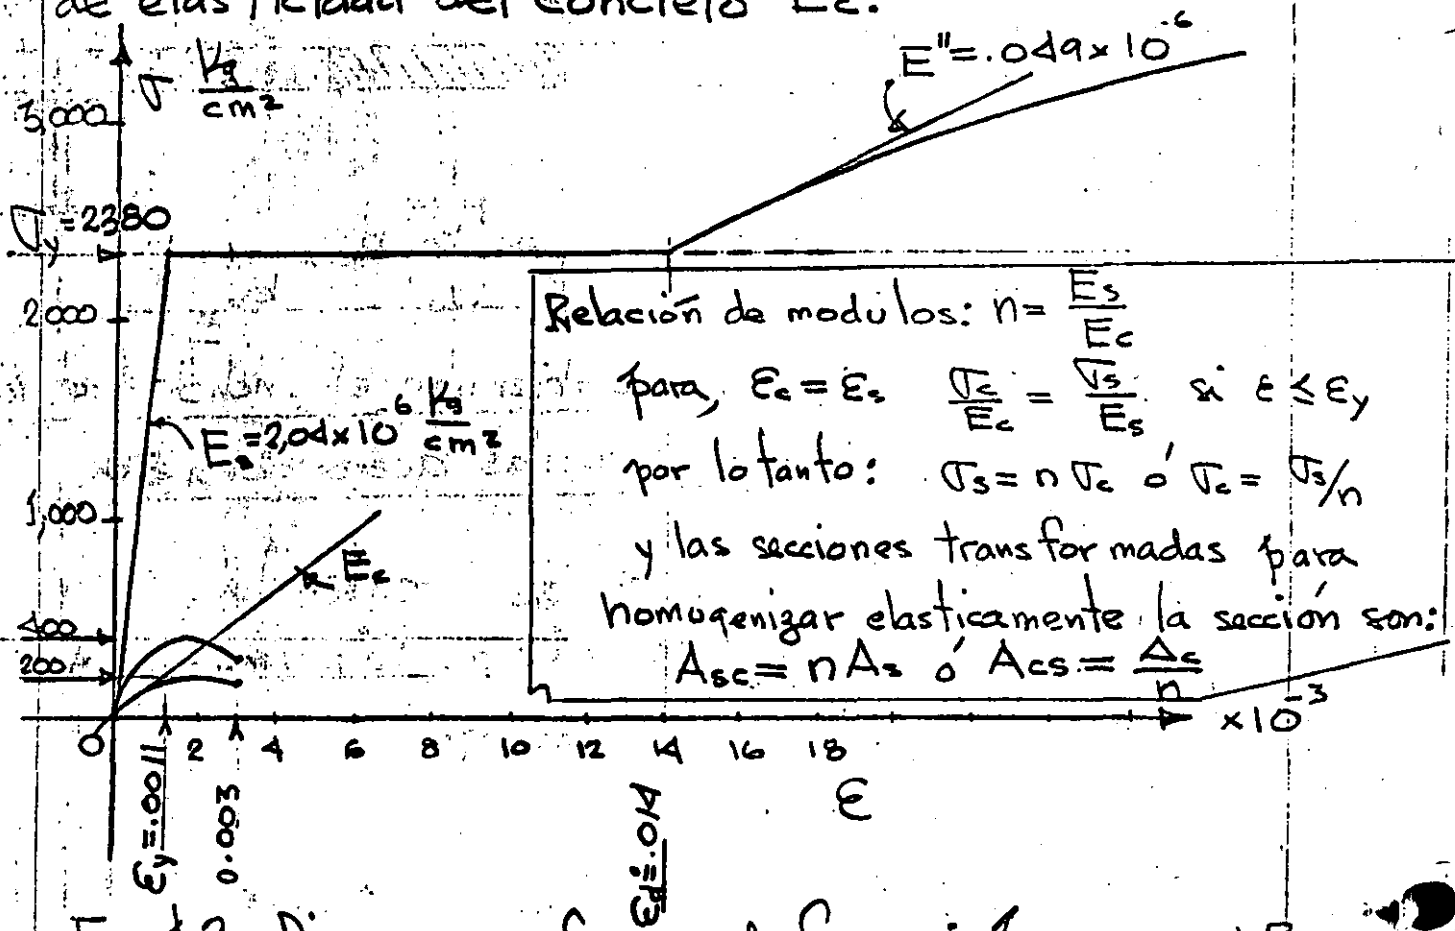 de elasticidad del concreto Ec.
E"=.049x10⁻⁶
σ Kg/cm²
3,000
σy=2380
2,000
Es=2,04x10⁶ Kg/cm²
1,000
Ec
400
200
Relación de modulos: n= Es/Ec
para, εc = εs σc/Ec = σs/Es si ε ≤ εy
por lo tanto: σs = n σc ó σc = σs/n
y las secciones transformadas para
homogenizar elasticamente la sección son:
Asc = n As ó Acs = Ac/n
x10⁻³
0 2 4 6 8 10 12 14 16 18
ε
εy=.0011
0.003
εd=.014